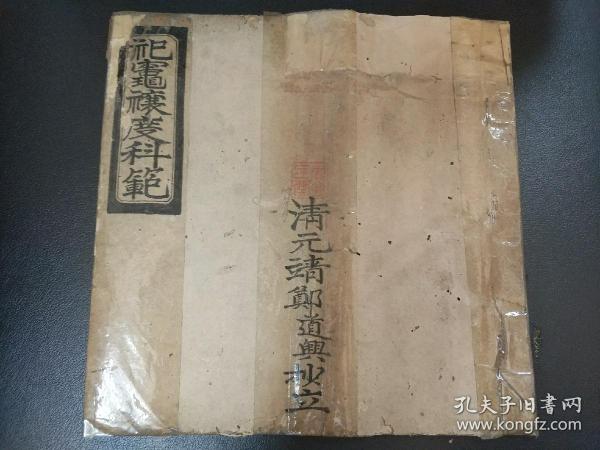 祀竈禳度科範
清元靖鄭道興抄立
孔夫子旧书网
kongfz.com